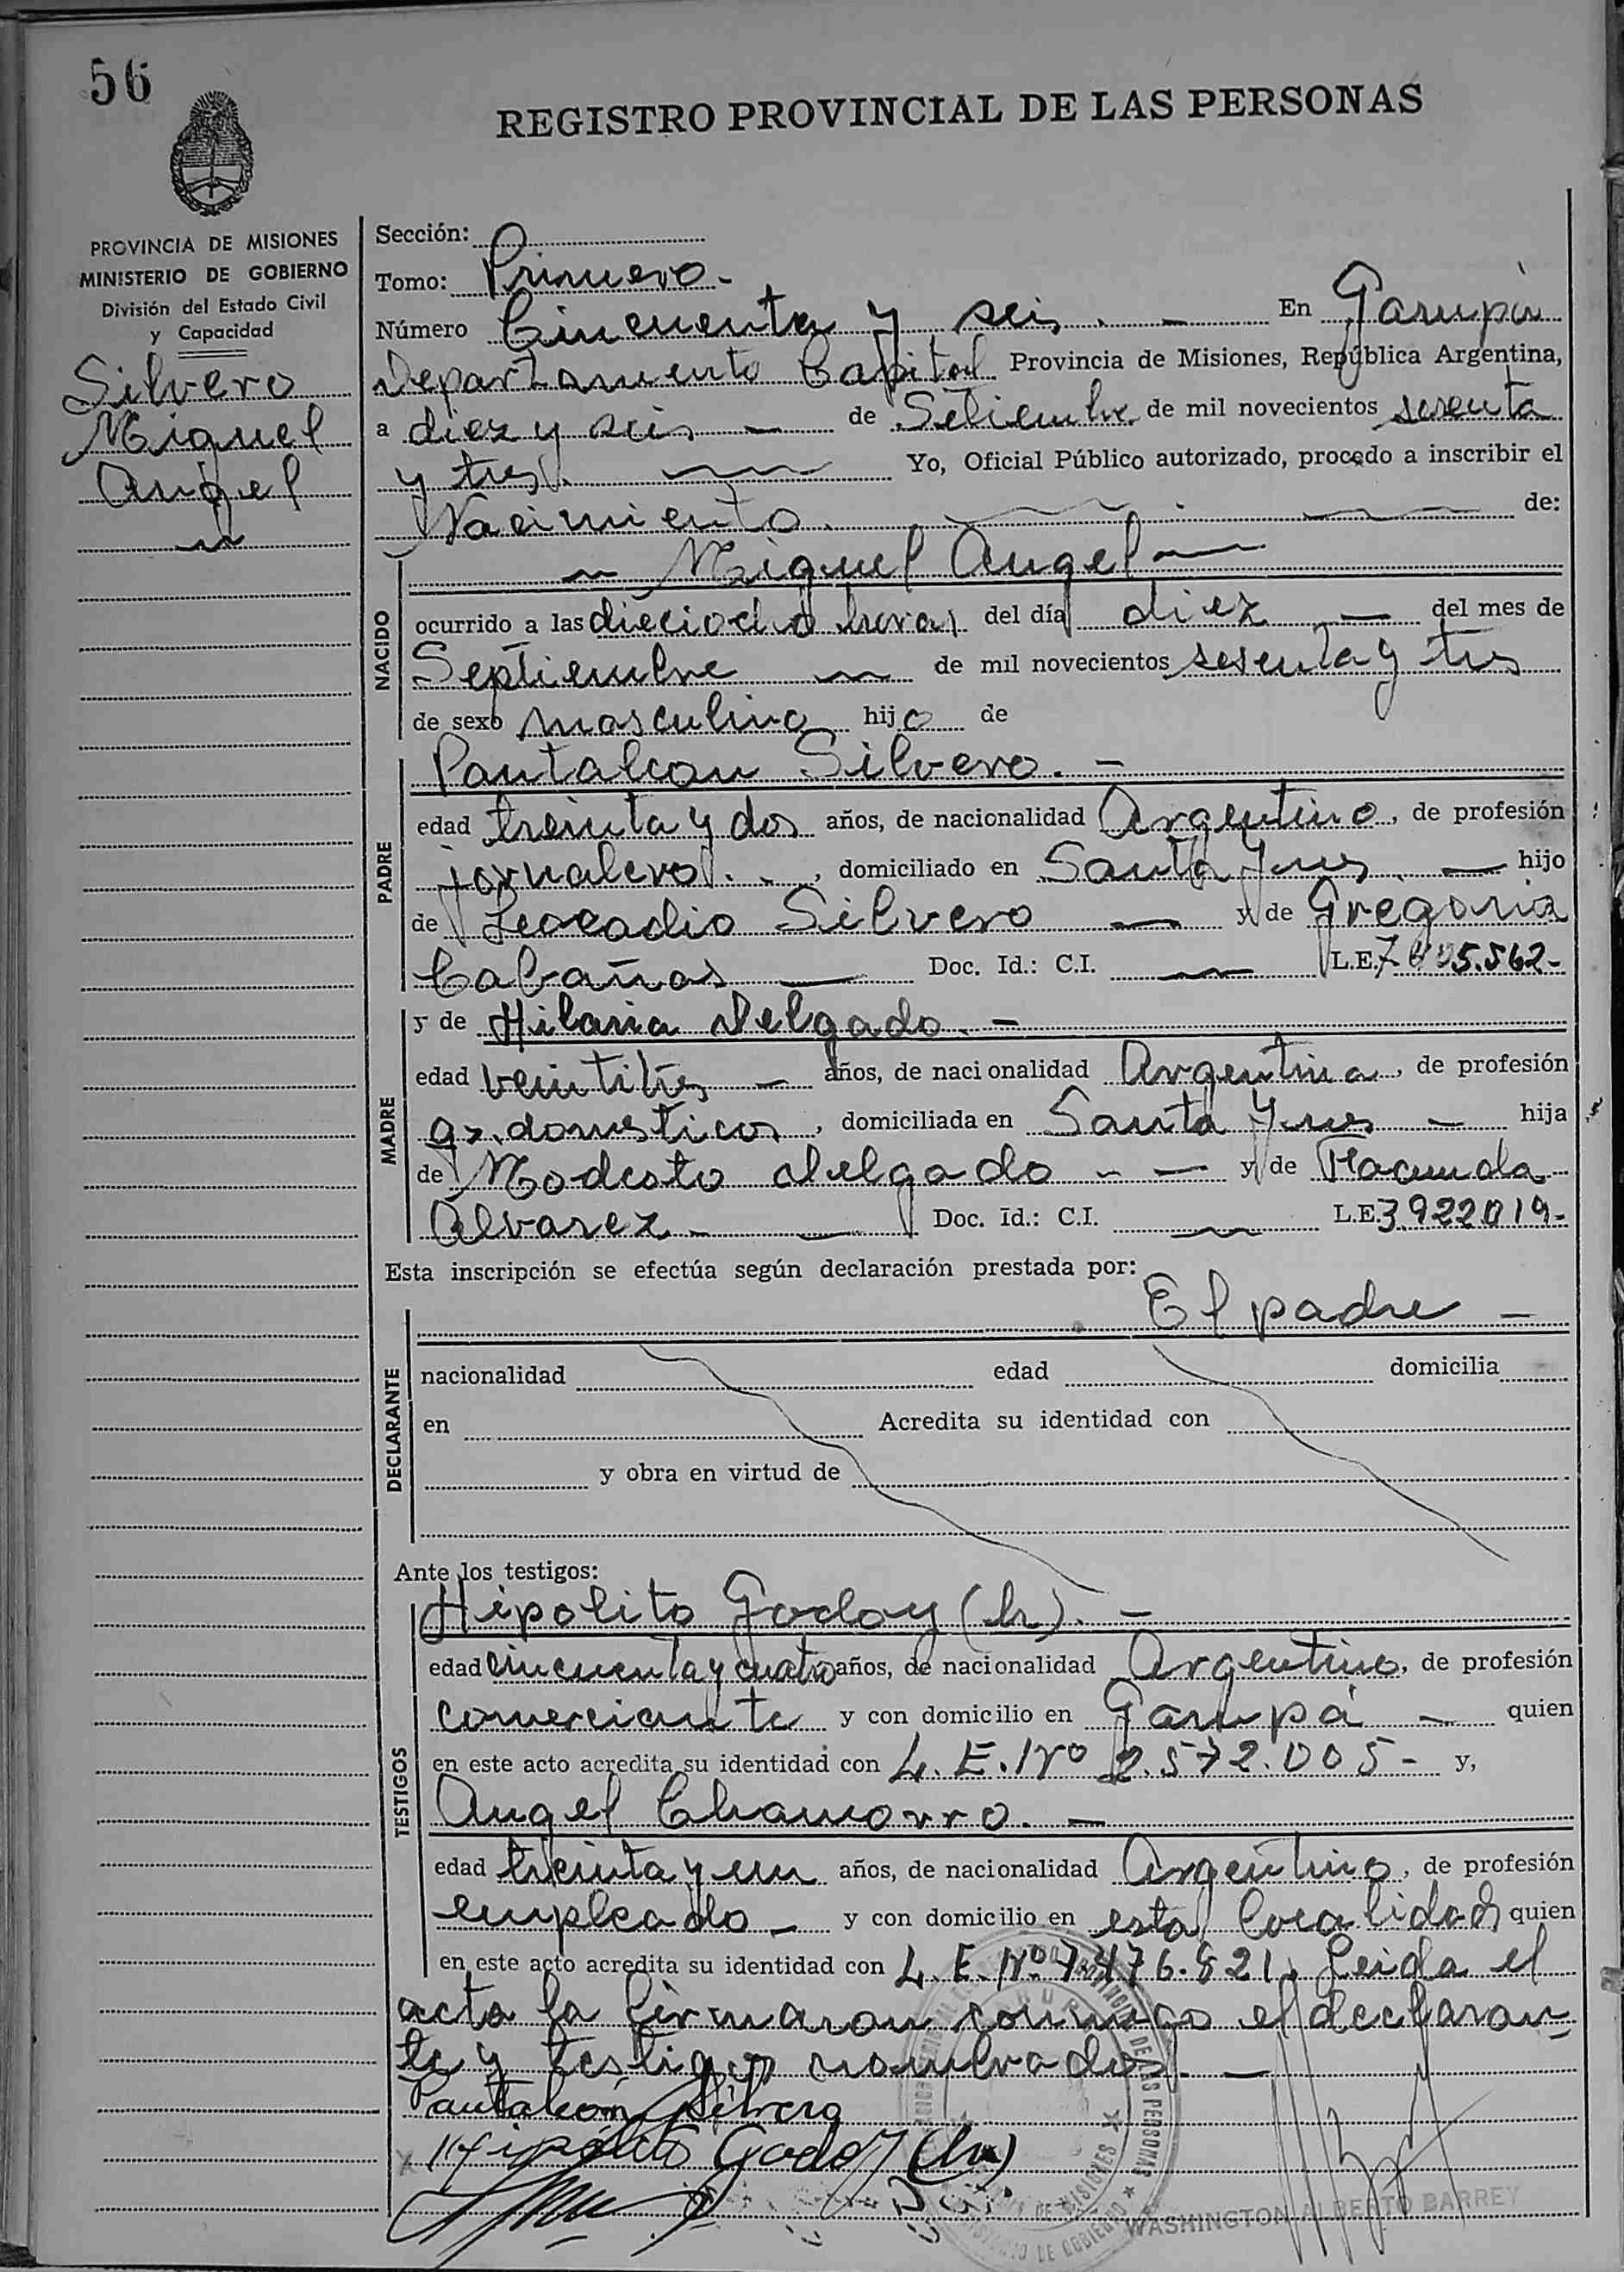 56
REGISTRO PROVINCIAL DE LAS PERSONAS
PROVINCIA DE MISIONES
MINISTERIO DE GOBIERNO
División del Estado Civil
y Capacidad
Silvero
Miguel
Angel
Sección:
Tomo: Primero.-
Número Cincuenta y seis. - En Garupá
Departamento Capital Provincia de Misiones, República Argentina,
a diez y seis - de Setiembre de mil novecientos sesenta
y tres. Yo, Oficial Público autorizado, procedo a inscribir el
Nacimiento. de:
NACIDO
Miguel Angel
ocurrido a las dieciocho horas del día diez - del mes de
Septiembre de mil novecientos sesenta y tres
de sexo masculino hijo de
PADRE
Pantaleon Silvero. -
edad treinta y dos años, de nacionalidad Argentino, de profesión
jornalero. , domiciliado en Santa Ynes. - hijo
de Leocadio Silvero - y de Gregoria
Cabañas - Doc. Id.: C.I. - L.E. 5.562-
MADRE
y de Hilaria Delgado. -
edad veintitres - años, de nacionalidad Argentina, de profesión
q>. domesticos, domiciliada en Santa Ynes - hija
de Modesto Delgado - - y de Facunda
Alvarez - Doc. Id.: C.I. - L.E. 3.922.019-
Esta inscripción se efectúa según declaración prestada por:
El padre -
DECLARANTE
nacionalidad edad domicilia
en Acredita su identidad con
y obra en virtud de
Ante los testigos:
TESTIGOS
Hipolito Godoy (h). -
edad cincuenta y cuatro años, de nacionalidad Argentino, de profesión
comerciante y con domicilio en Garupá - quien
en este acto acredita su identidad con L.E. Nº 2.572.005- y,
Angel Chamorro. -
edad treinta y un años, de nacionalidad Argentino, de profesión
empleado - y con domicilio en esta localidad quien
en este acto acredita su identidad con L.E. Nº 7.476.821. Leida el
acta la firmaron conmigo el declaran-
te y testigos nombrados. -
Pantaleón Silvero
Hipólito Godoy (h)
WASHINGTON ALBERTO BARREY